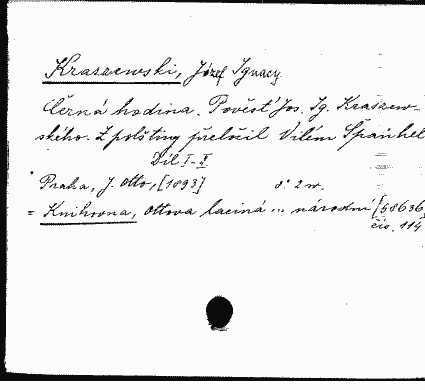 Kraszewski, Józef Ignacy.
Černá hodina. Pověst' Jos. Ig. Kraszew-
ského. Z polštiny přeložil Vilém Špañhel
Díl I-II
Praha, J. Otto, [1893] 8° 2 w.
= Knihovna, Ottova laciná ... národní [58636]
čís. 114